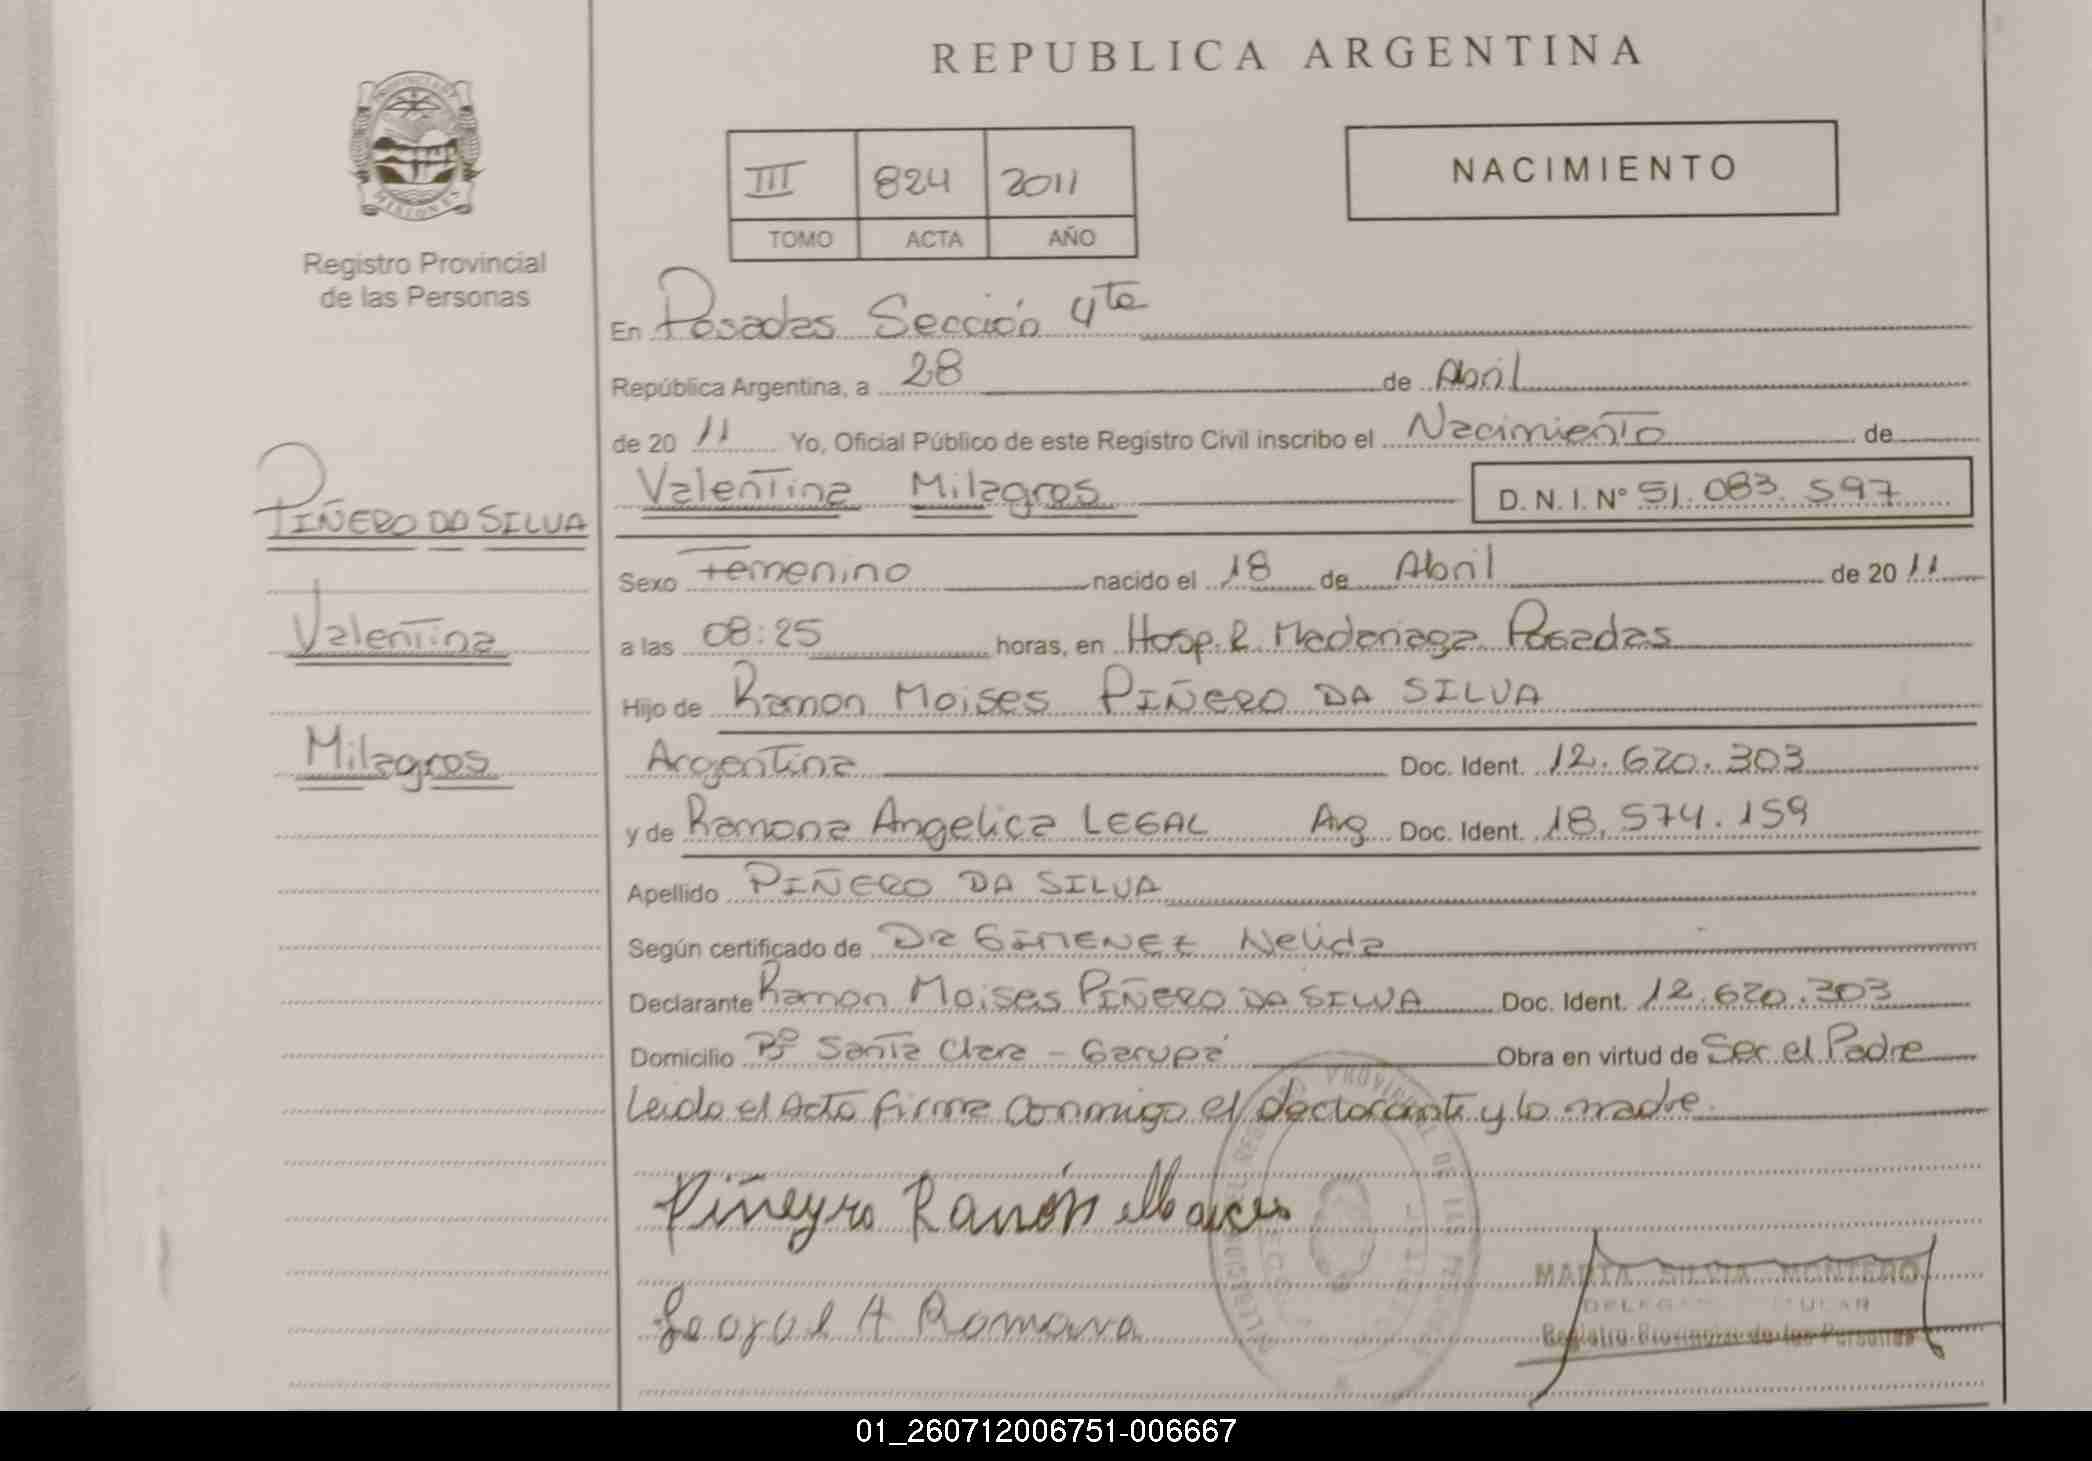 REPUBLICA ARGENTINA
PROVINCIA DE MISIONES
Registro Provincial
de las Personas
III 824 2011
TOMO ACTA AÑO
NACIMIENTO
En Posadas Sección 4ta
República Argentina, a 28 de Abril
de 2011 Yo, Oficial Público de este Registro Civil inscribo el Nacimiento de
Valentina Milagros D. N. I. N° 51.083.597
PIÑERO DA SILVA
Valentina
Milagros
Sexo Femenino nacido el 18 de Abril de 2011
a las 08:25 horas, en Hosp. R. Madariaga Posadas
Hijo de Ramon Moises PIÑERO DA SILVA
Argentina Doc. Ident. 12.620.303
y de Ramona Angelica LEGAL Arg Doc. Ident. 18.574.159
Apellido PIÑERO DA SILVA
Según certificado de Dra GIMENEZ Nelida
Declarante Ramon Moises PIÑERO DA SILVA Doc. Ident. 12.620.303
Domicilio Bº Santa Clara - Garupá Obra en virtud de Ser el Padre
Leida el Acta firma conmigo el declarante y la madre.
Piñeyro Ramón
A Romana
MARTA SILVIA MONTERO
Registro Provincial de las Personas
01_260712006751-006667